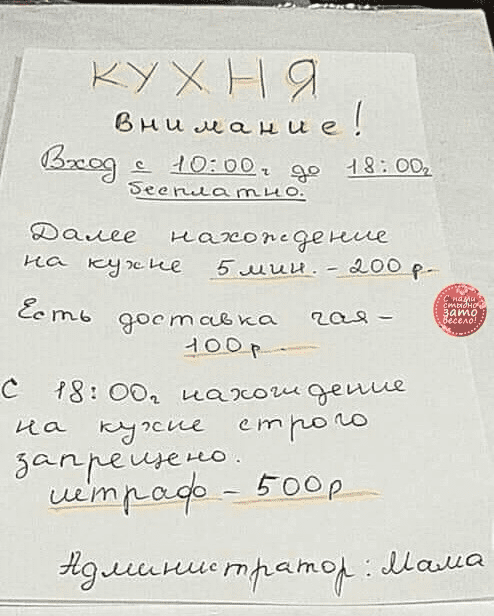 КУХНЯ
Внимание!
Вход с 10:00ч до 18:00ч
бесплатно.
Далее нахождение
на кухне 5 мин. - 200 р.
Есть доставка чая -
100 р.
С 18:00ч нахождение
на кухне строго
запрещено.
штраф - 500р
Администратор: Мама
С нами
стыдно,
зато
весело!